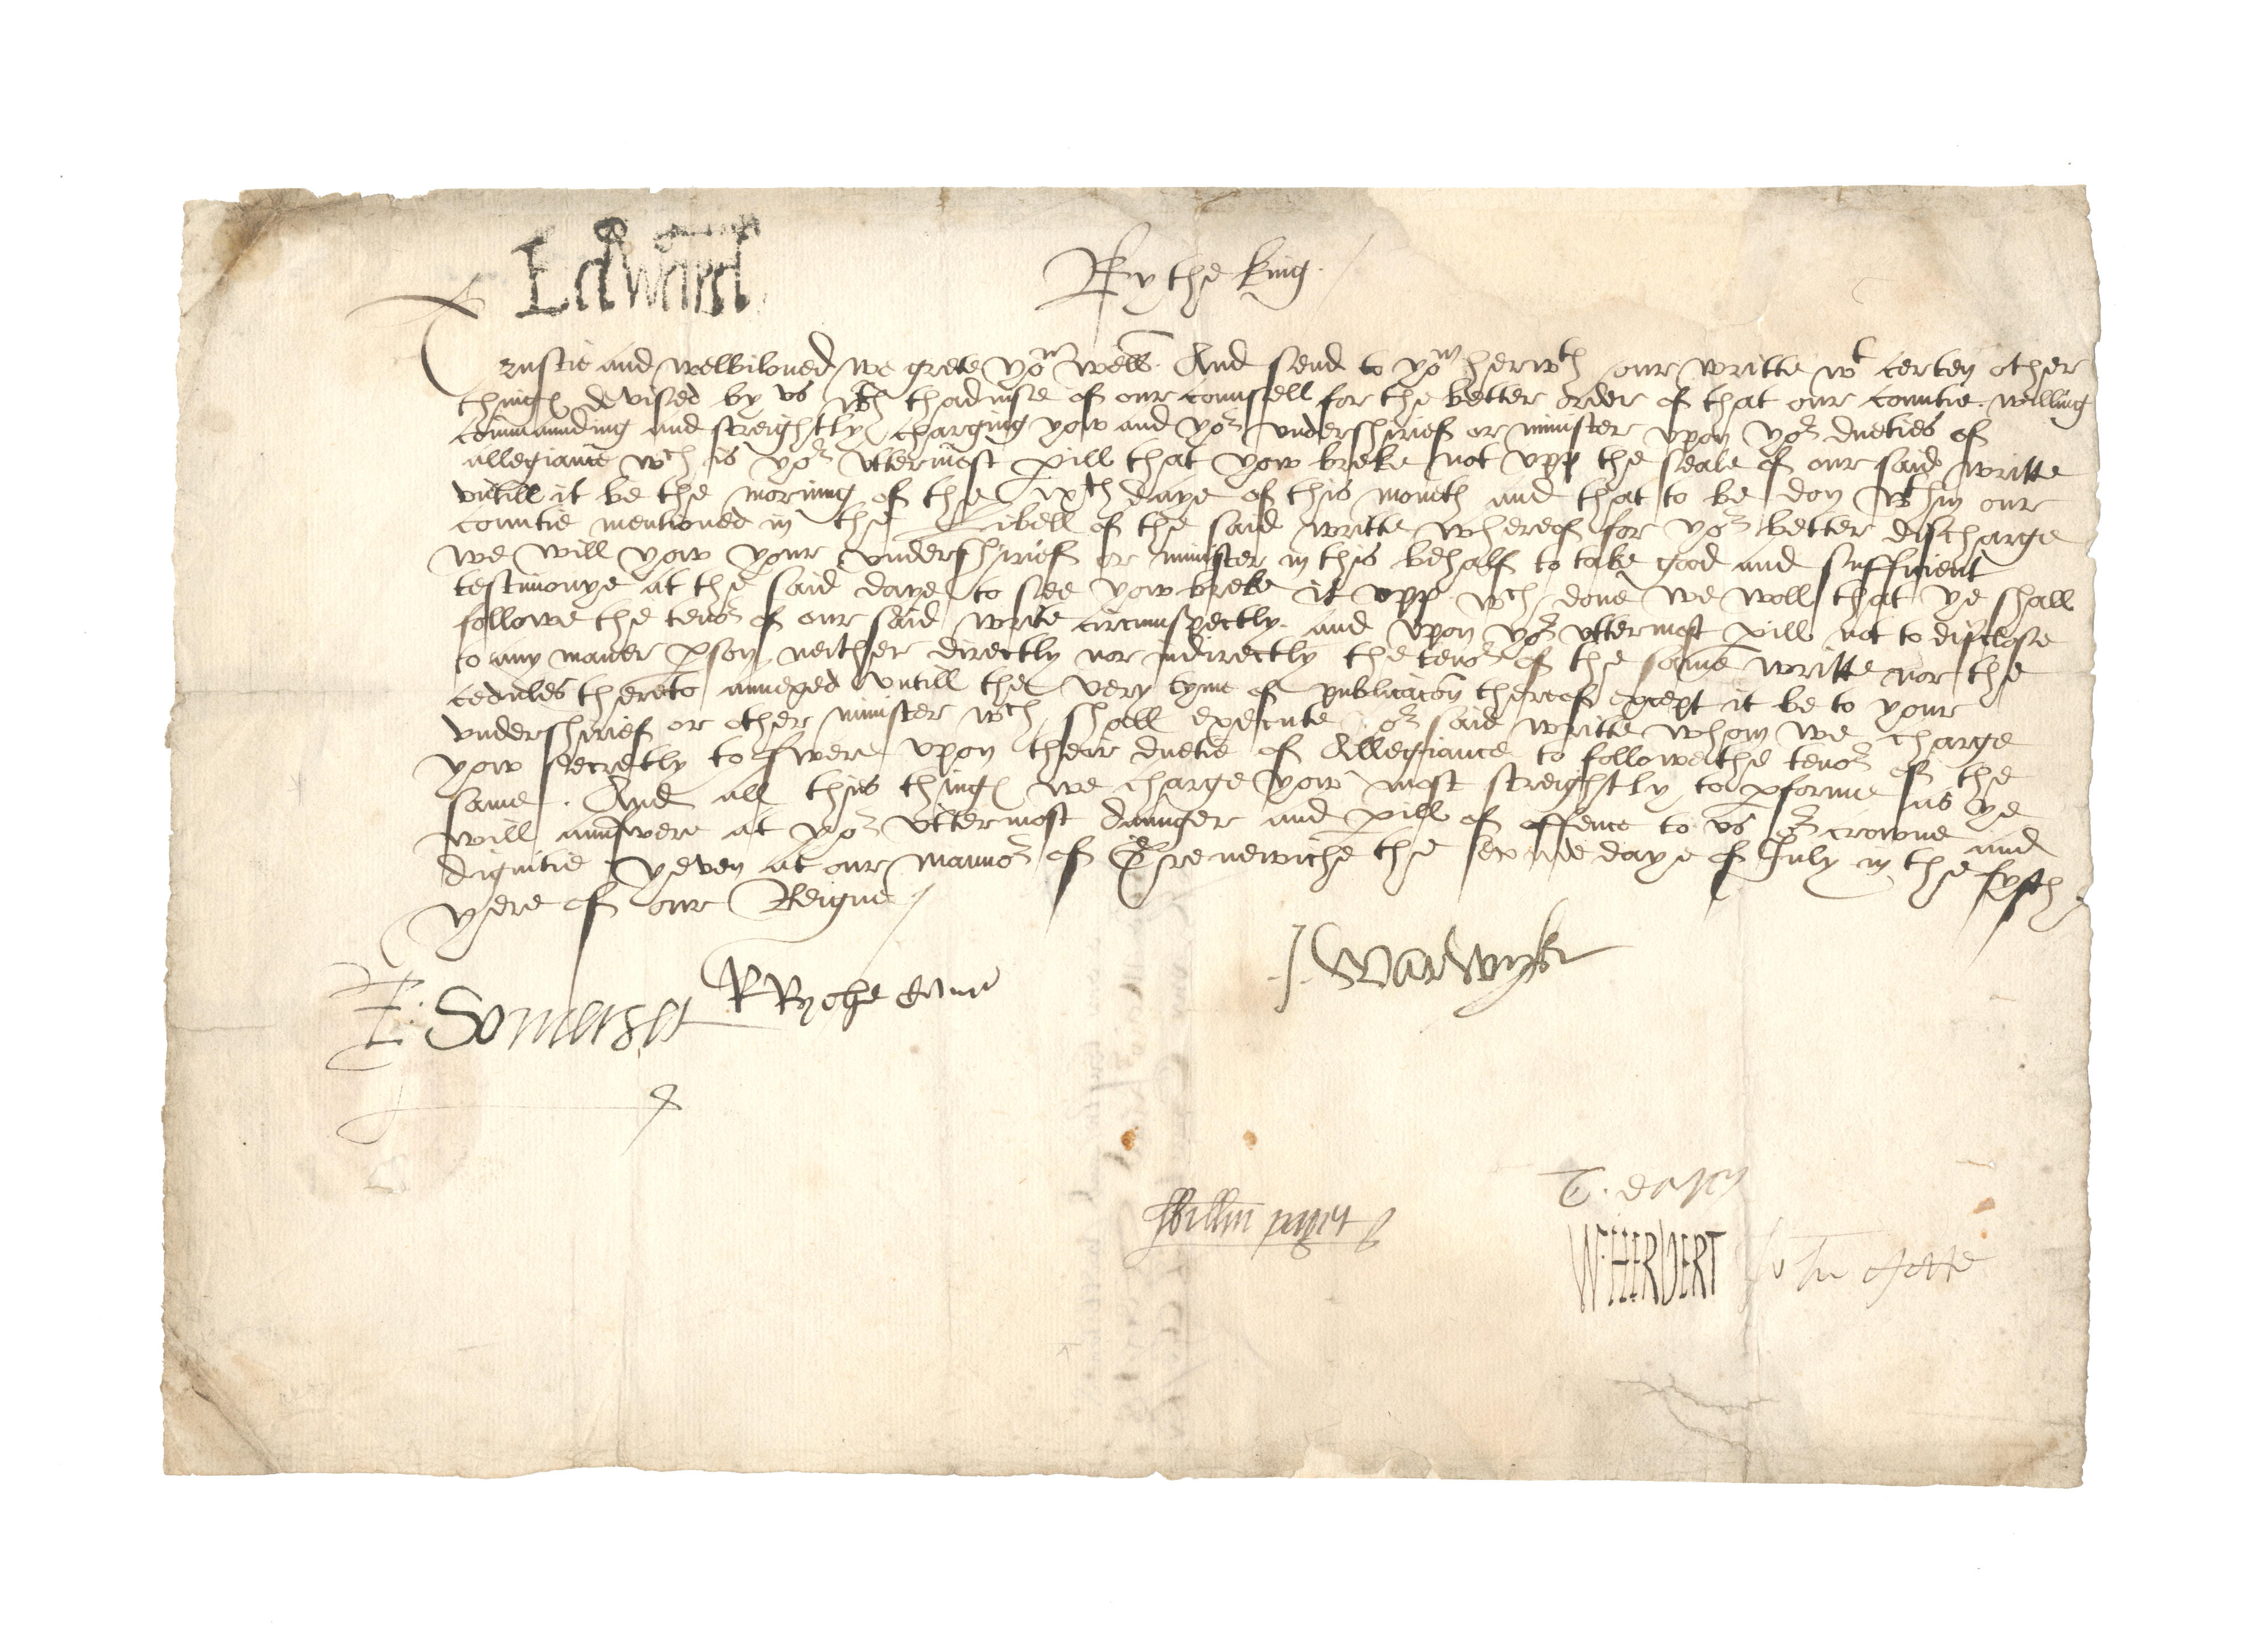 Edward
By the king
Trustie and welbiloued we grete yow well. And send to yow herwth our writte wt certen other
things devised by vs wth thaduise of our counsell for the better order of that our countie. willing
commaunding and streightly charging yow and yor vndershirief or minister vpon yor dueties of
allegiaunce wch is yor vttermost pill that yow breke not vpp the seale of our said writte
vntill it be the morning of the ixth daye of this month and that to be don wthin our
countie mentioned in the Libell of the said writte whereof for yor better discharge
we will yow your vndershirief or minister in this behalf to take good and sufficient
testimonye at the said daye to see yow breke it vpp wch done we woll that ye shall
followe the tenor of our said write circumspectly. and vpon yor vttermost pill not to disclose
to any maner pson neither directly nor indirectly the tenor of the same writte nor the
cedules thereto annexed vntill the very tyme of publicacon thereof except it be to your
vndershirief or other minister wch shall execute or said writte whom we charge
yow secretly to swere vpon their duetie of Allegiance to followe the tenor of the
same. And all thies things we charge yow most streightly to pforme as ye
will aunswere at yor vttermost daunger and pill of offence to vs or crowne and
dignitie yeven at our mannor of Grenewiche the daye of July in the fyfth
yere of our Reigne
E. Somerset R Ryche Canc J. Warwyk
T. Darcy
Willm paget W. HERBERT John Gate